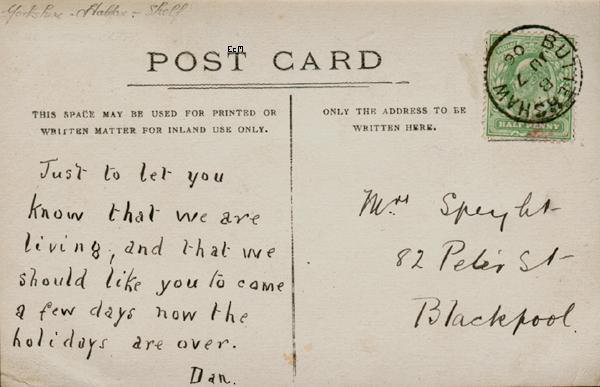 Yorkshire - Halifax - Shelf
EcM
POST CARD
THIS SPACE MAY BE USED FOR PRINTED OR
WRITTEN MATTER FOR INLAND USE ONLY.
Just to let you
know that we are
living, and that we
should like you to come
a few days now the
holidays are over.
Dan.
ONLY THE ADDRESS TO BE
WRITTEN HERE.
Mrs Speight
82 Peter St
Blackpool.
BUTTERSHAW
AU 8
06
HALF PENNY